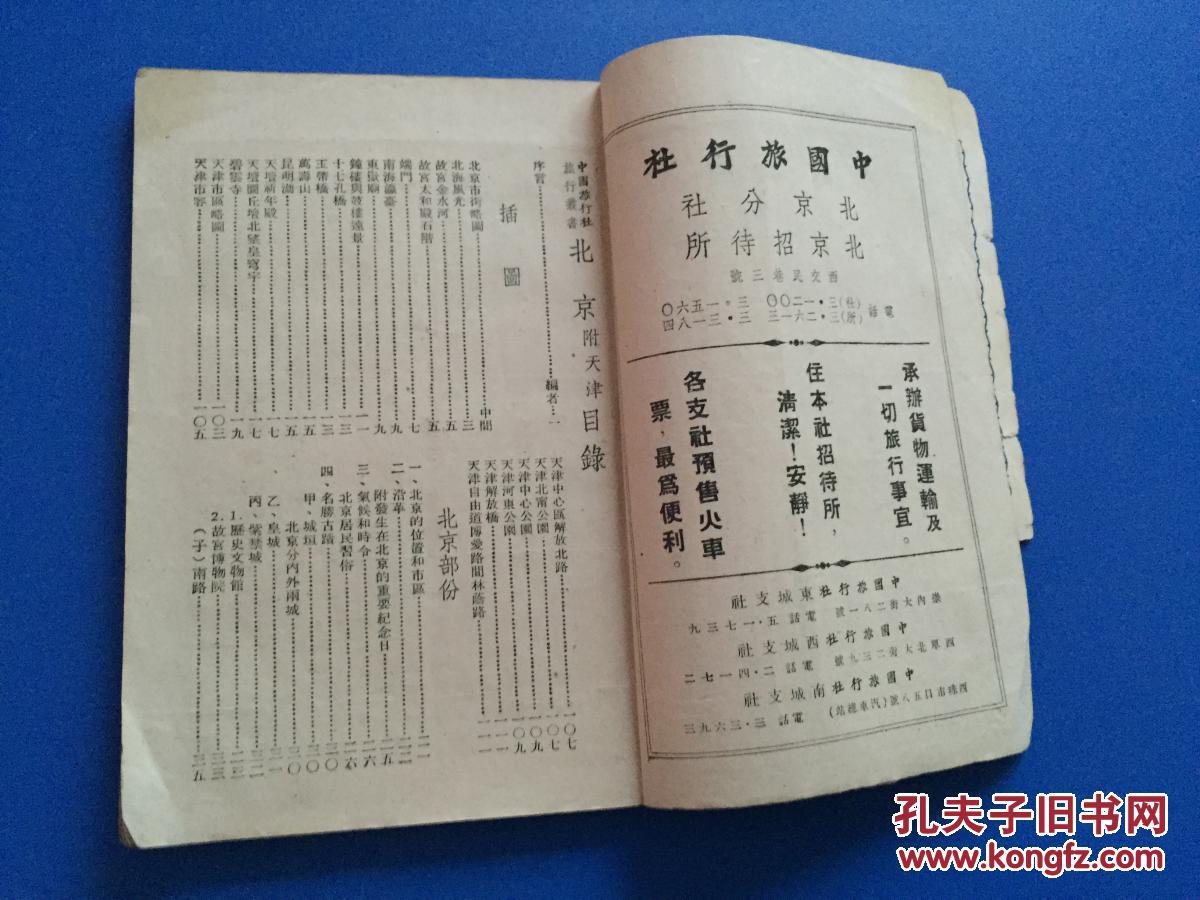 中國旅行社
北京分社
北京招待所
西交民巷三號
電話
(社)三・一二〇〇 三・一五六〇
(所)三・二六一三 三・三一八四
承辦貨物運輸及
一切旅行事宜。
住本社招待所，
清潔！安靜！
各支社預售火車
票，最爲便利。
中國旅行社東城支社
崇內大街二八一號 電話 五・一七三九
中國旅行社西城支社
西單北大街二三九號 電話 二・四一七二
中國旅行社南城支社
西珠市口五八號(汽車總站) 電話 三・三六九三
中國旅行社
旅行叢書
北京附天津目錄
序言 編者 一
插圖
北京市街略圖 中間
北海風光 三
故宮金水河 五
故宮太和殿石階 五
端門 七
南海瀛臺 九
東嶽廟 九
鐘樓與鼓樓遠景 一一
十七孔橋 一三
玉帶橋 一三
萬壽山 一五
昆明湖 一五
天壇祈年殿 一七
天壇圜丘壇北望皇穹宇 一七
碧雲寺 一九
天津市區略圖 一〇三
天津市容 一〇五
天津中心區解放北路 一〇七
天津北甯公園 一〇七
天津中心公園 一〇九
天津河東公園 一〇九
天津解放橋 一一一
天津自由道博愛路間林蔭路 一一一
北京部份
一、北京的位置和市區
二、沿革
附發生在北京的重要紀念日
三、氣候和時令
北京居民習俗
四、名勝古蹟
甲、城垣
北京分內外兩城
乙、皇城
丙、紫禁城
1.歷史文物館
2.故宮博物院
(子)南路
孔夫子旧书网
www.kongfz.com